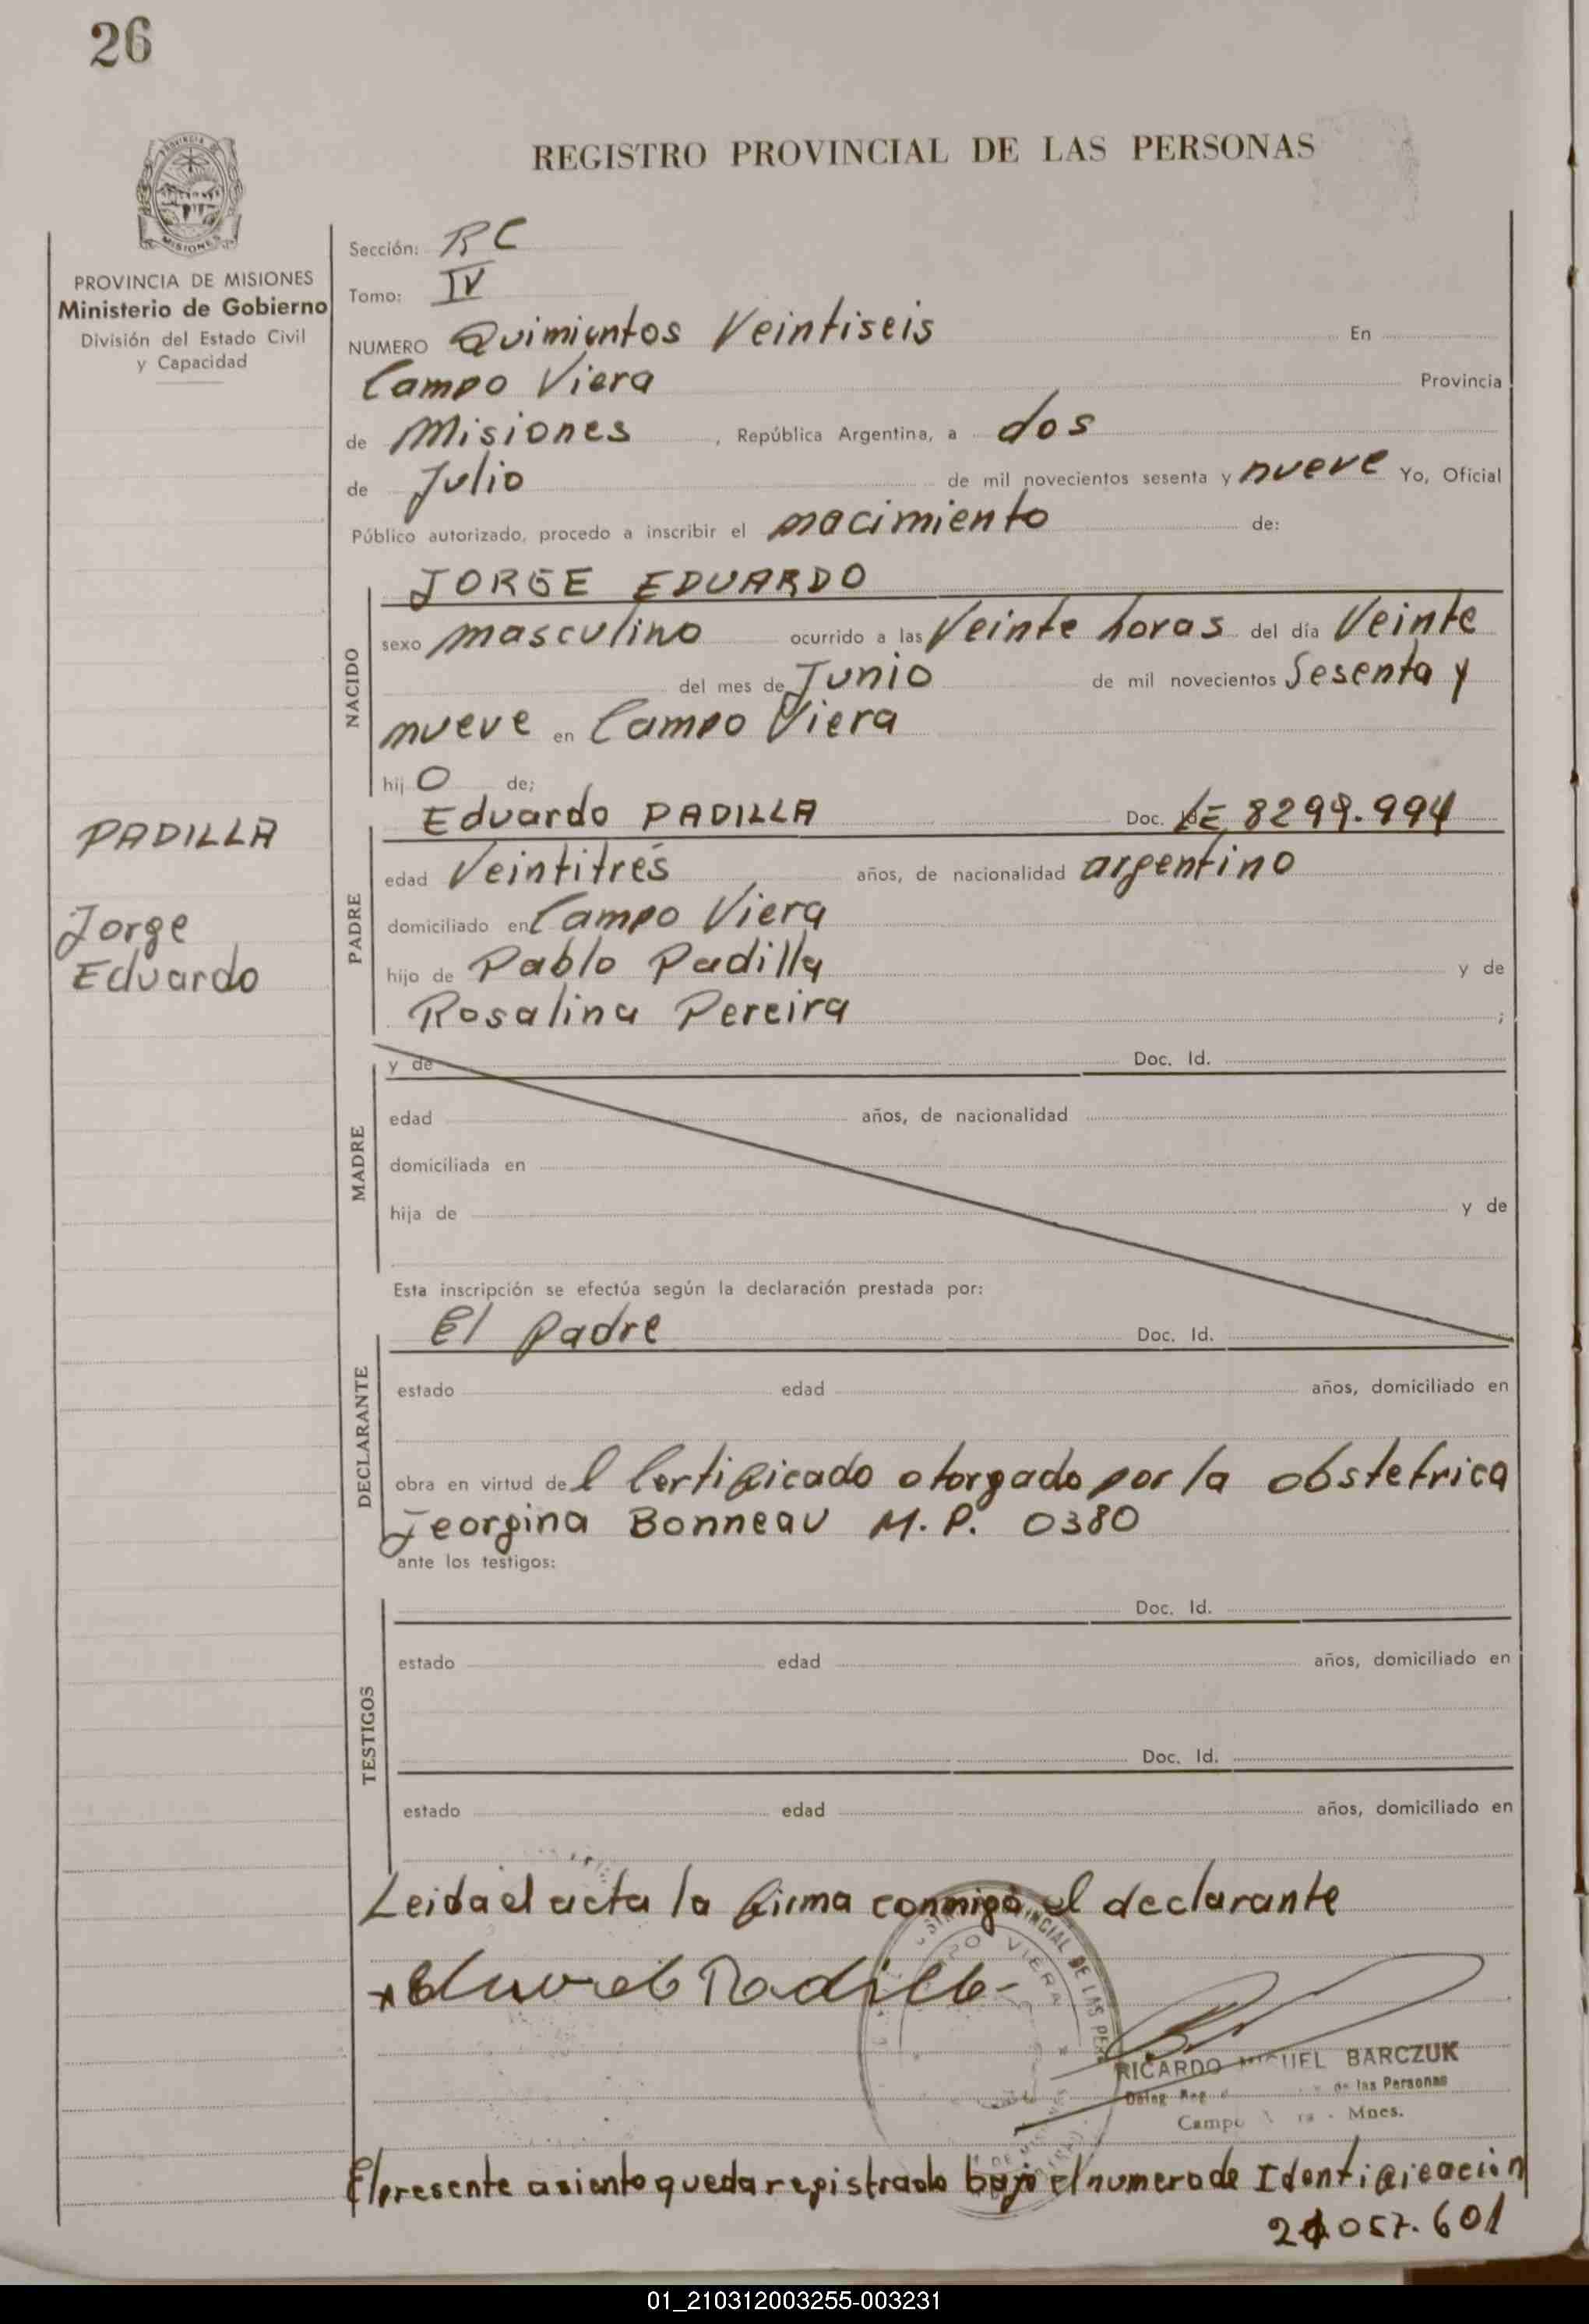 26
REGISTRO PROVINCIAL DE LAS PERSONAS
PROVINCIA DE MISIONES
Ministerio de Gobierno
División del Estado Civil
y Capacidad
Sección: RC
Tomo: IV
NUMERO Quimientos Veintiseis En
Campo Viera Provincia
de Misiones, República Argentina, a dos
de Julio de mil novecientos sesenta y nueve Yo, Oficial
Público autorizado, procedo a inscribir el nacimiento de:
NACIDO
JORGE EDUARDO
sexo masculino ocurrido a las Veinte horas del día Veinte
del mes de Junio de mil novecientos Sesenta y
nueve en Campo Viera
hijo de;
PADILLA
Jorge
Eduardo
PADRE
Eduardo PADILLA Doc. LE 8299.994
edad Veintitrés años, de nacionalidad argentino
domiciliado en Campo Viera
hijo de Pablo Padilla y de
Rosalina Pereira ;
MADRE
y de Doc. Id.
edad años, de nacionalidad
domiciliada en
hija de y de
Esta inscripción se efectúa según la declaración prestada por:
DECLARANTE
El Padre Doc. Id.
estado edad años, domiciliado en
obra en virtud del Certificado otorgado por la obstetrica
Jeorgina Bonneau M.P. 0380
ante los testigos:
TESTIGOS
Doc. Id.
estado edad años, domiciliado en
Doc. Id.
estado edad años, domiciliado en
Leida el acta la firma conmigo el declarante
Eduardo Padilla
RICARDO MIGUEL BARCZUK
Deleg. Reg. de las Personas
Campo Viera - Mnes.
El presente asiento queda registrado bajo el numero de Identificacion
21.057.601
01_210312003255-003231